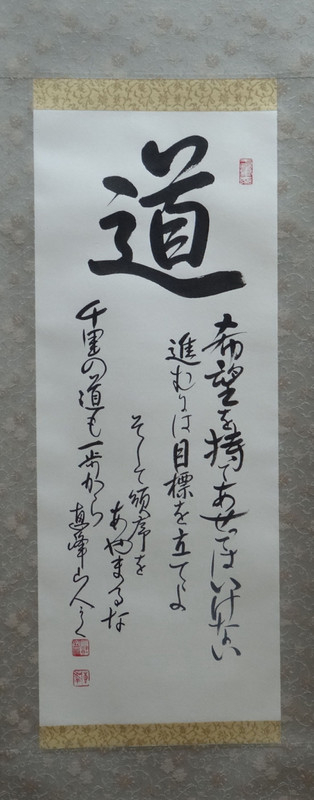 道
希望を持てあせってはいけない
進むには目標を立てよ
そして順序を
あやまるな
千里の道も一歩から
直峰山人